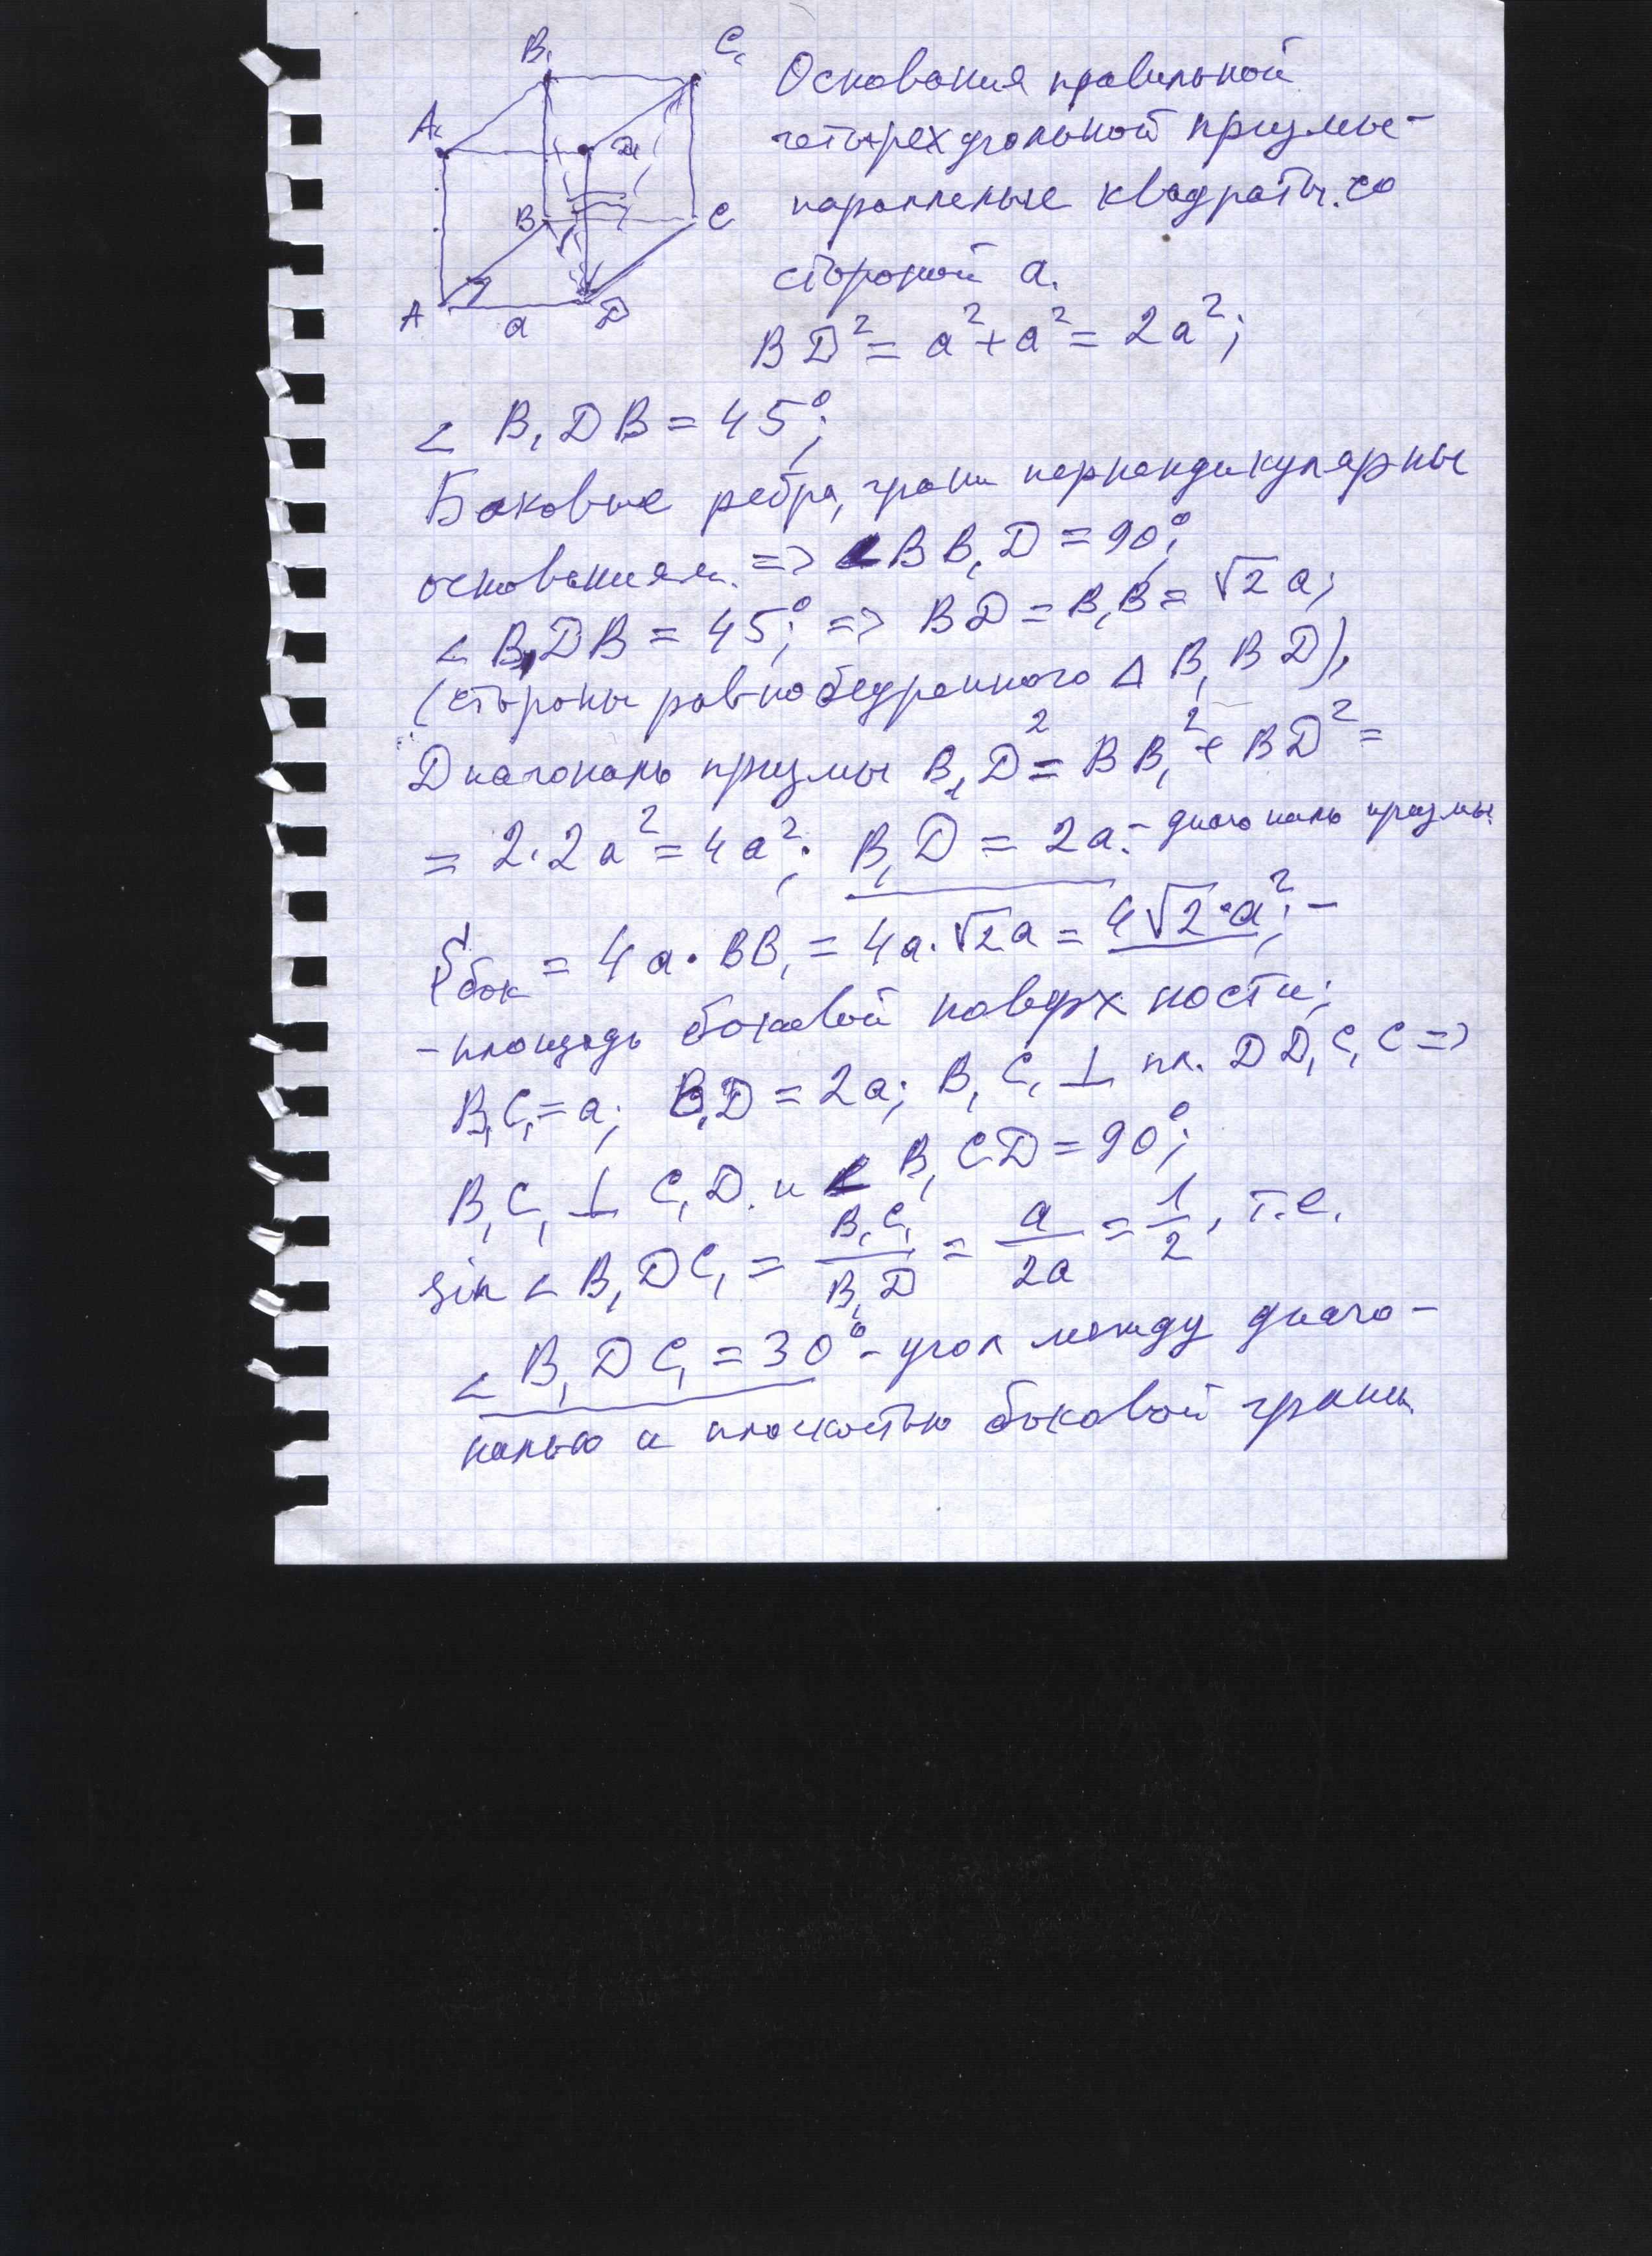 B₁ C₁
A₁ D₁
B C
A a D
Основания правильной
четырехугольной призмы -
параллельные квадраты. со
стороной a.
BD² = a² + a² = 2a²;
∠ B₁DB = 45°;
Боковые ребра, грани перпендикулярны
основаниям. => ∠BB₁D = 90°;
∠ B₁DB = 45°; => BD = B₁B = √2 a;
(стороны равнобедренного Δ B₁BD),
Диагональ призмы B₁D² = BB₁² + BD² =
= 2·2a² = 4a²; B₁D = 2a. - диагональ призмы.
Sбок = 4a·BB₁ = 4a·√2a = 4√2·a²; -
- площадь боковой поверхности;
B₁C₁ = a; B₁D = 2a; B₁C₁ ⊥ пл. DD₁C₁C =>
B₁C₁ ⊥ C₁D. и ∠ B₁CD = 90°;
sin ∠ B₁DC₁ = B₁C₁/B₁D = a/2a = 1/2, т.е.
∠ B₁DC₁ = 30° - угол между диаго-
налью и плоскостью боковой грани.